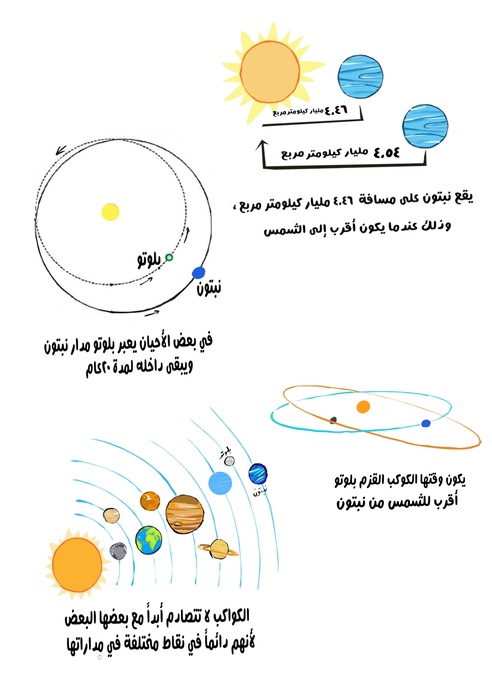 ٤.٤٦ مليار كيلومتر مربع
٤.٥٤ مليار كيلومتر مربع
يقع نبتون على مسافة ٤.٤٦ مليار كيلومتر مربع ،
وذلك عندما يكون أقرب إلى الشمس
بلوتو
نبتون
في بعض الأحيان يعبر بلوتو مدار نبتون
ويبقى داخله لمدة ٢٠عام
يكون وقتها الكوكب القزم بلوتو
أقرب للشمس من نبتون
بلوتو
نبتون
الكواكب لا تتصادم أبداً مع بعضها البعض
لأنهم دائماً في نقاط مختلفة في مداراتها